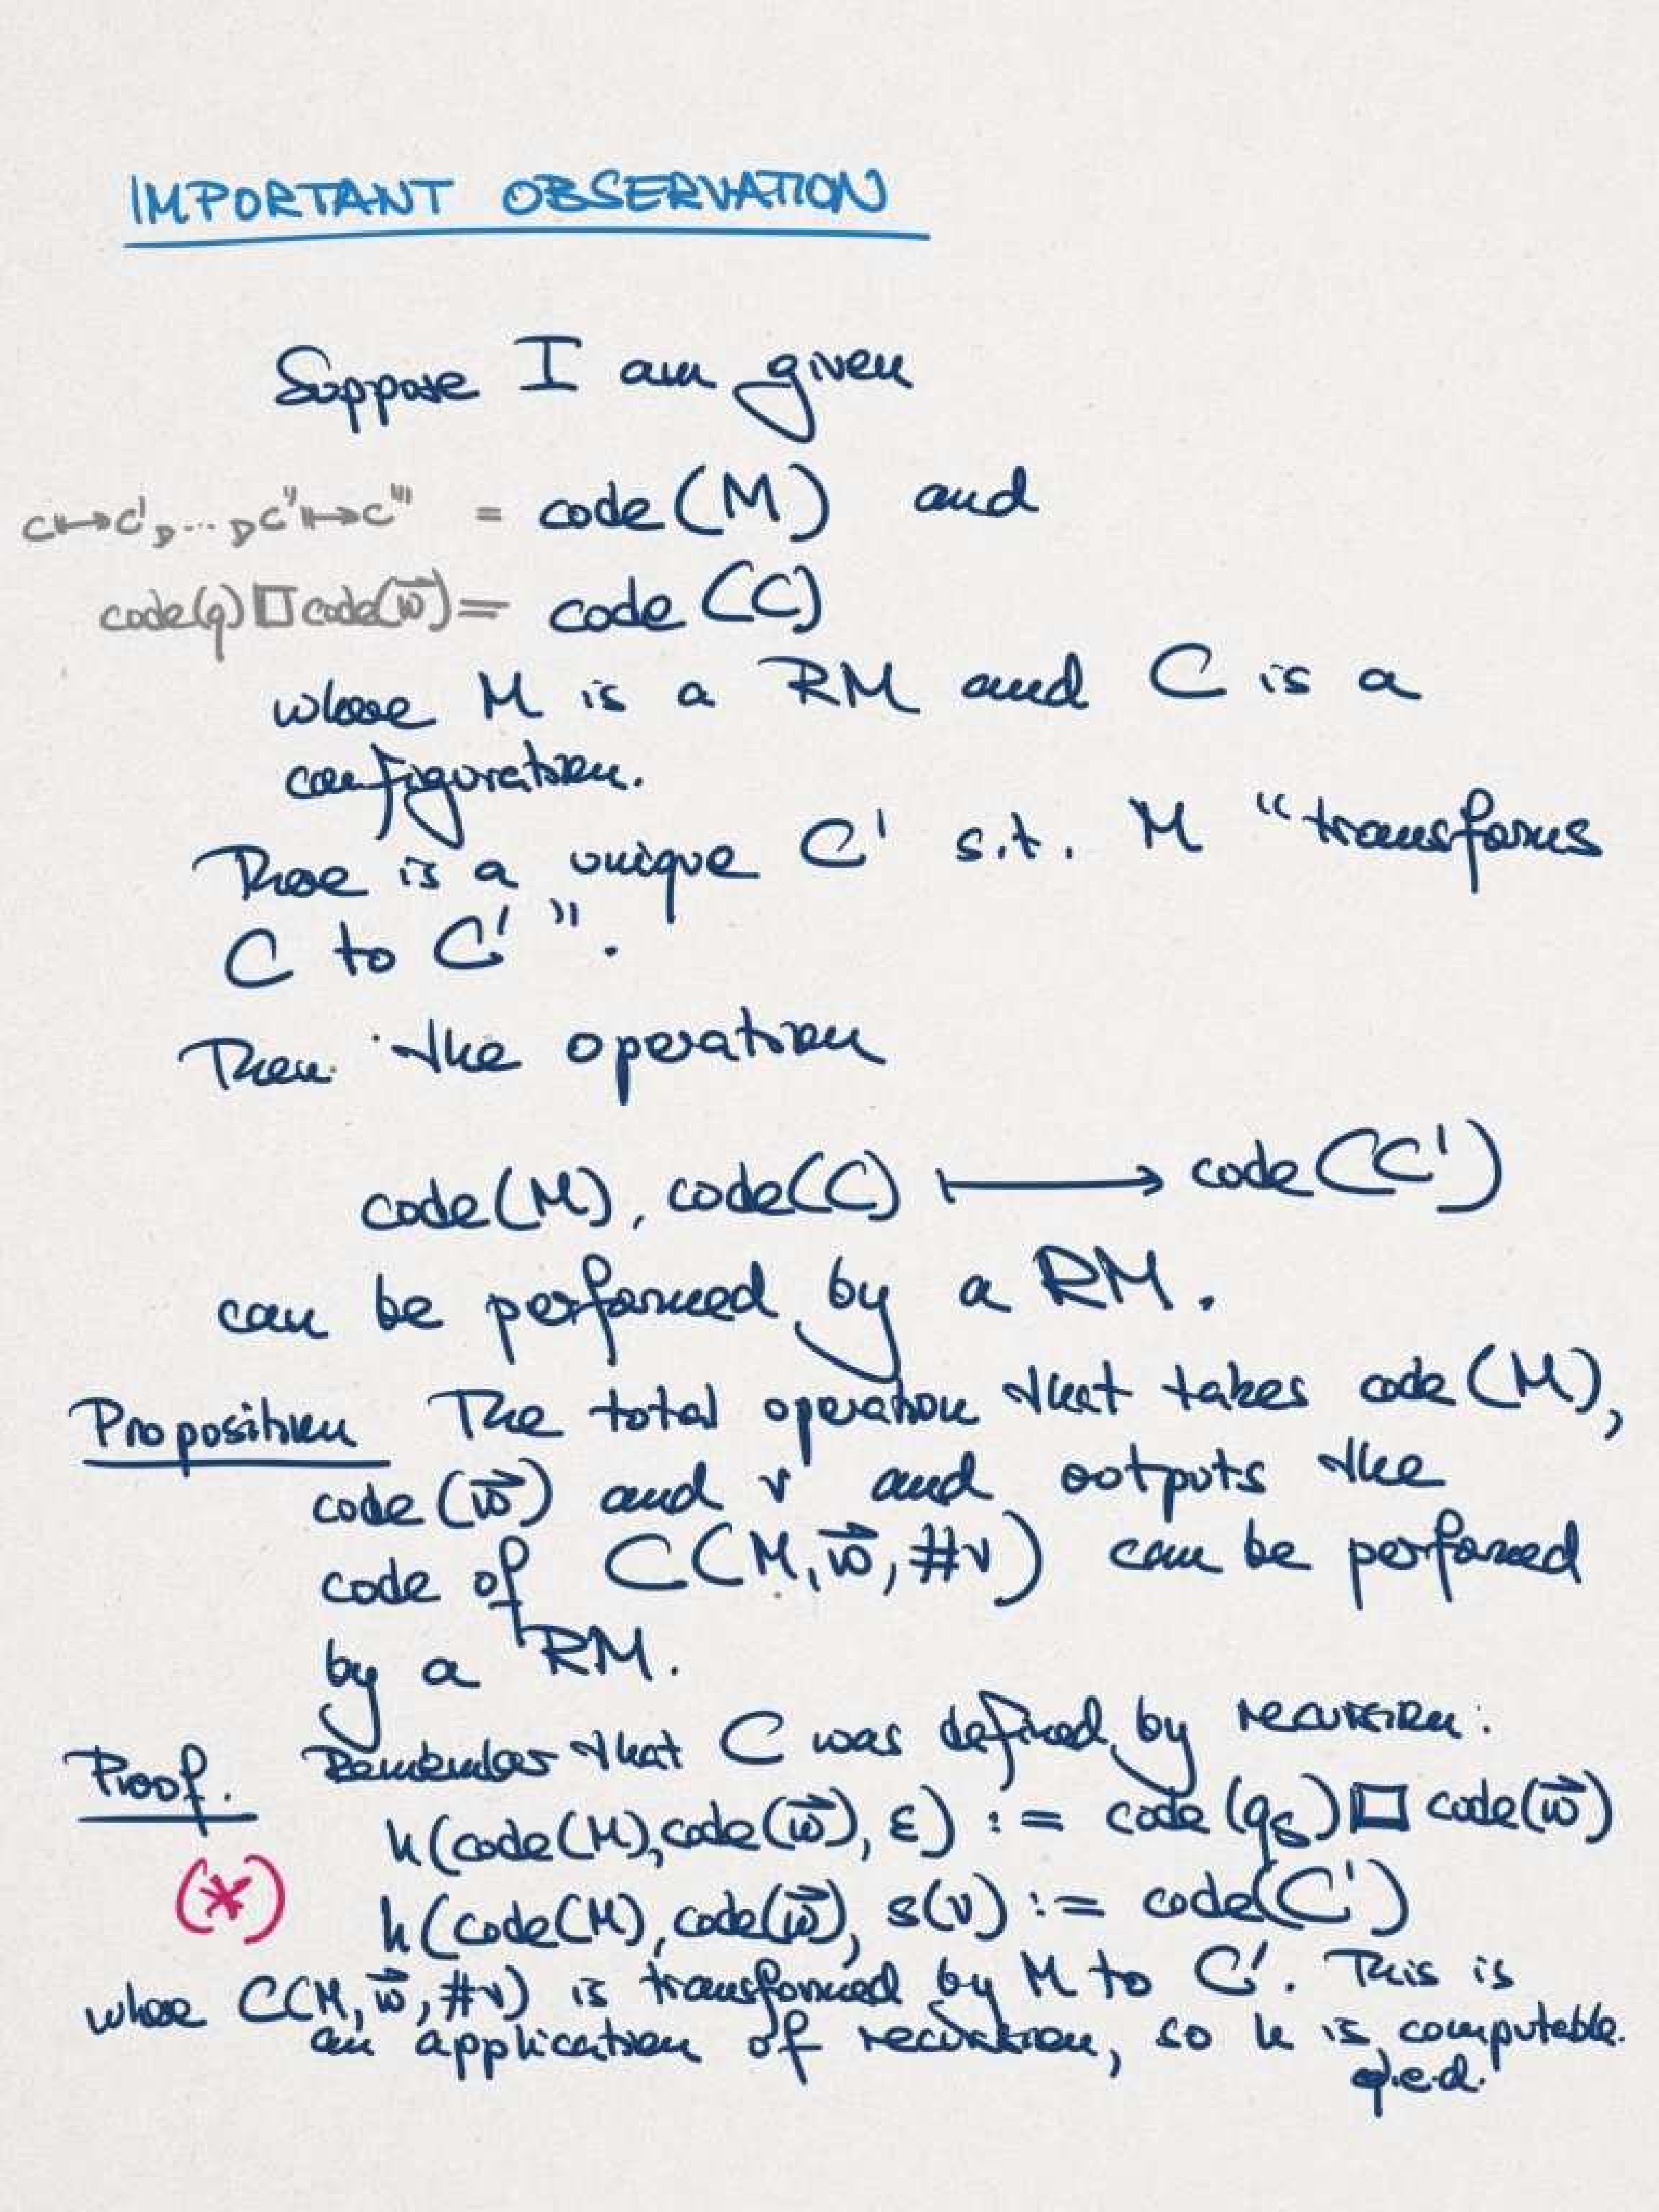 IMPORTANT OBSERVATION
Suppose I am given
C ↦ C', ... , C'' ↦ C''' = code(M) and
code(q) □ code(w⃗) = code(C)
where M is a RM and C is a
configuration.
There is a unique C' s.t. M "transforms
C to C'".
Then the operation
code(M), code(C) ⟼ code(C')
can be performed by a RM.
Proposition The total operation that takes code(M),
code(w⃗) and v and outputs the
code of C(M, w⃗, #v) can be performed
by a RM.
Proof. Remember that C was defined by recursion:
h(code(M), code(w⃗), ε) := code(q_S) □ code(w⃗)
(*) h(code(M), code(w⃗), s(v)) := code(C')
where C(M, w⃗, #v) is transformed by M to C'. This is
an application of recursion, so h is computable.
q.e.d.